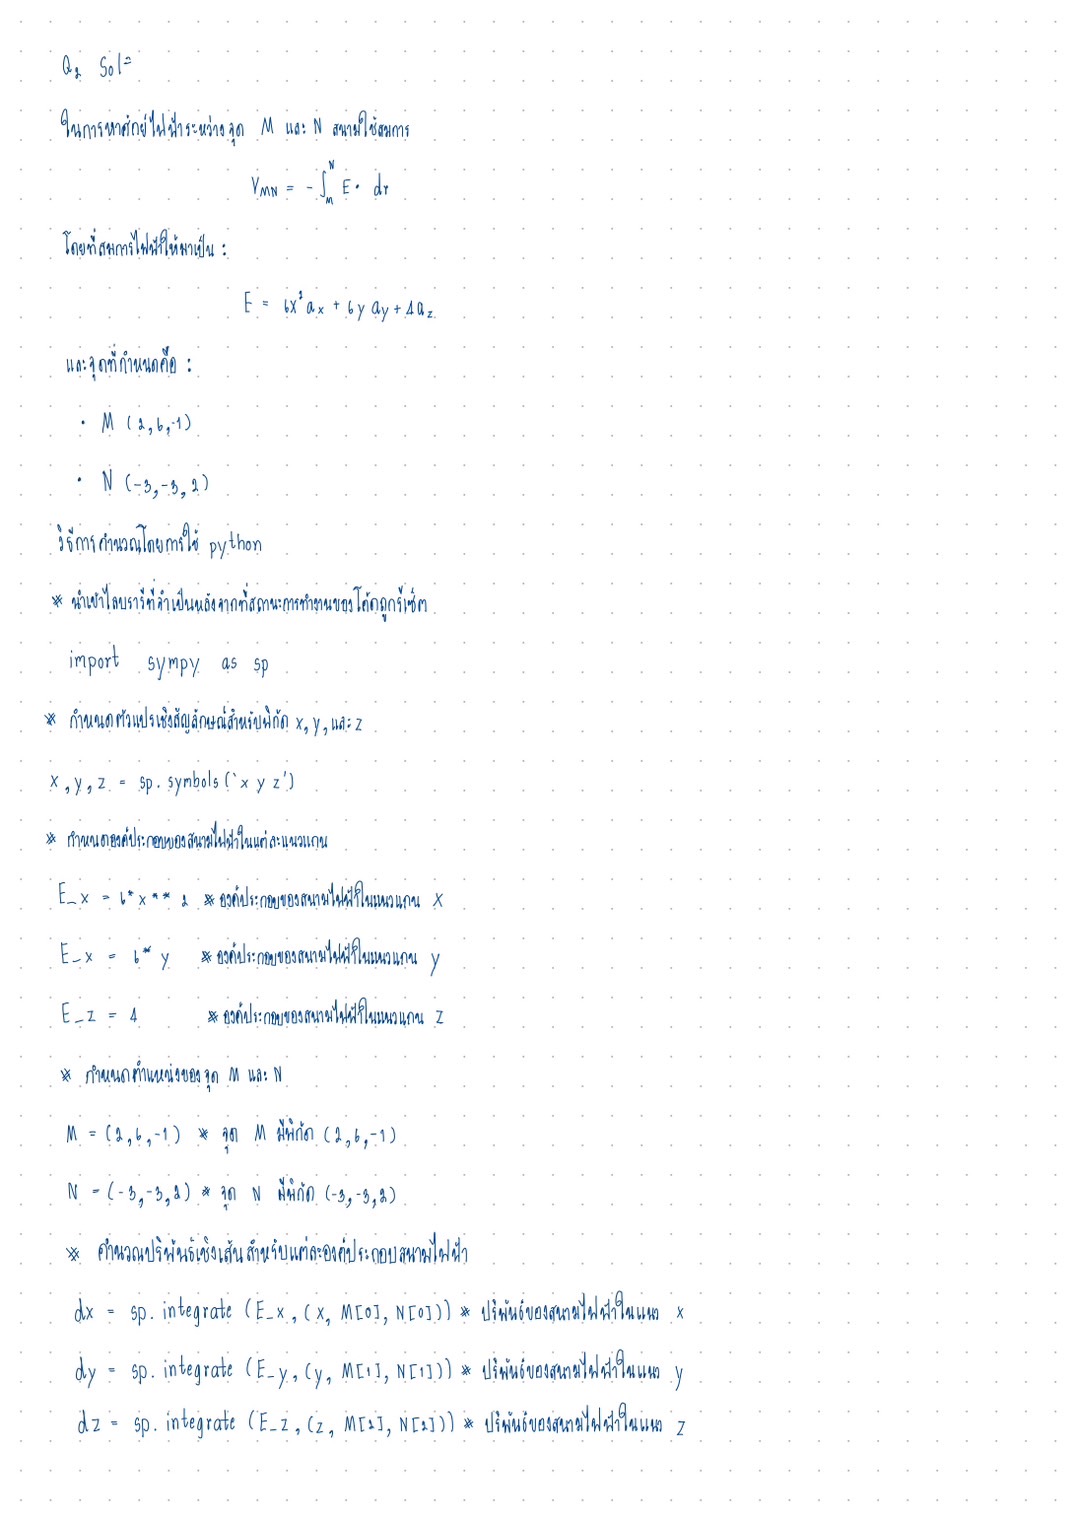 Q2 Sol=
ในการหาศักย์ไฟฟ้าระหว่างจุด M และ N สามาใช้สมการ
V_MN = - ∫_M^N E · dr
โดยที่สมการไฟฟ้าให้มาเป็น :
E = 6x² ax + 6y ay + 4 az
และจุดที่กำหนดคือ :
· M (2,6,-1)
· N (-3,-3,2)
วิธีการคำนวณโดยการใช้ python
* นำเข้าไลบรารีที่จำเป็นหลังจากที่สถานะการทำงานของโค้ดถูกรีเซ็ต
import sympy as sp
* กำหนดตัวแปรเชิงสัญลักษณ์สำหรับพิกัด x, y, และ z
x, y, z = sp. symbols ('x y z')
* กำหนดองค์ประกอบของสนามไฟฟ้าในแต่ละแนวแกน
E_x = 6* x ** 2 * องค์ประกอบของสนามไฟฟ้าในแนวแกน x
E_x = 6* y * องค์ประกอบของสนามไฟฟ้าในแนวแกน y
E_z = 4 * องค์ประกอบของสนามไฟฟ้าในแนวแกน z
* กำหนดตำแหน่งของจุด M และ N
M = (2,6,-1) * จุด M มีพิกัด (2,6,-1)
N = (-3,-3,2) * จุด N มีพิกัด (-3,-3,2)
* คำนวณปริพันธ์เชิงเส้นสำหรับแต่ละองค์ประกอบสนามไฟฟ้า
dx = sp. integrate (E_x, (x, M[0], N[0])) * ปริพันธ์ของสนามไฟฟ้าในแนว x
dy = sp. integrate (E_y, (y, M[1], N[1])) * ปริพันธ์ของสนามไฟฟ้าในแนว y
dz = sp. integrate (E_z, (z, M[2], N[2])) * ปริพันธ์ของสนามไฟฟ้าในแนว z